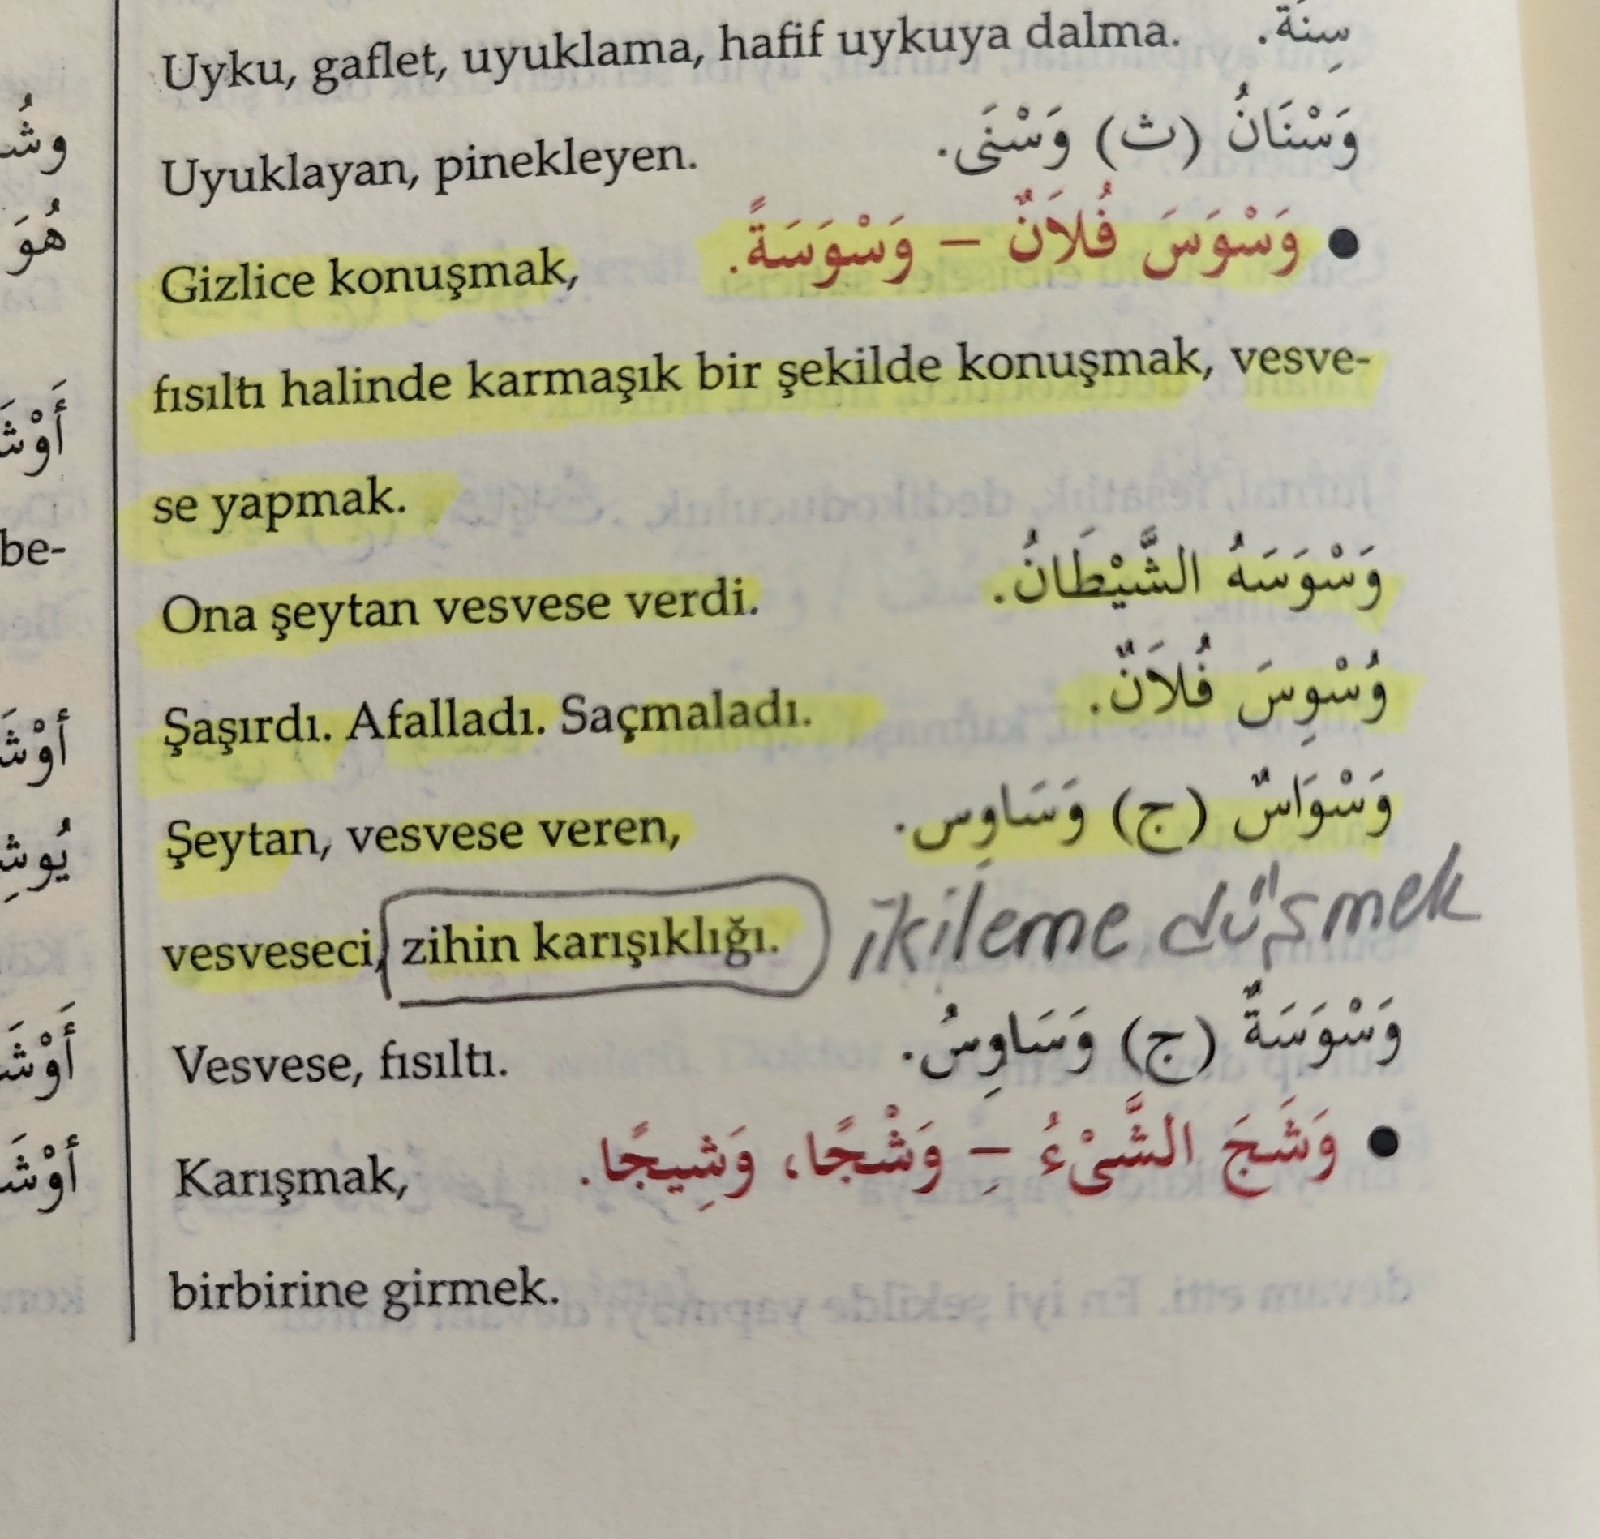 Uyku, gaflet, uyuklama, hafif uykuya dalma. سِنَةٌ.
Uyuklayan, pinekleyen. وَسْنَانُ (ث) وَسْنَى.
● وَسْوَسَ فُلاَنٌ – وَسْوَسَةً. Gizlice konuşmak,
fısıltı halinde karmaşık bir şekilde konuşmak, vesve-
se yapmak.
Ona şeytan vesvese verdi. وَسْوَسَهُ الشَّيْطَانُ.
Şaşırdı. Afalladı. Saçmaladı. وُسْوِسَ فُلاَنٌ.
Şeytan, vesvese veren, وَسْوَاسٌ (ج) وَسَاوِس.
vesveseci, zihin karışıklığı. ikileme düşmek
Vesvese, fısıltı. وَسْوَسَةٌ (ج) وَسَاوِسُ.
● وَشَجَ الشَّىْءُ –ِ وَشْجًا، وَشِيجًا. Karışmak,
birbirine girmek.
هُوَ
be-